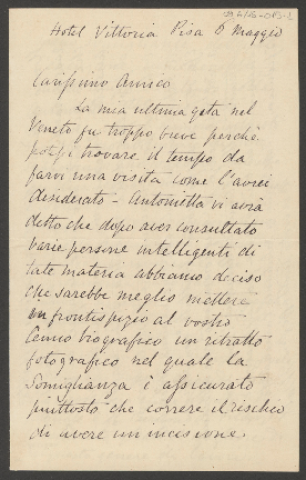 Hotel Vittoria Pisa 6 Maggio
Carissimo Amico
La mia ultima gita nel
Veneto fu troppo breve perchè
potessi trovare il tempo da
farvi una visita come l'avrei
desiderato - Antonietta vi avrà
detto che dopo aver consultato
varie persone intelligenti di
tale materia abbiamo deciso
che sarebbe meglio mettere
in frontispizio al vostro
Cenno biografico un ritratto
fotografico nel quale la
somiglianza è assicurata
piuttosto che correre il rischio
di avere un incisione.